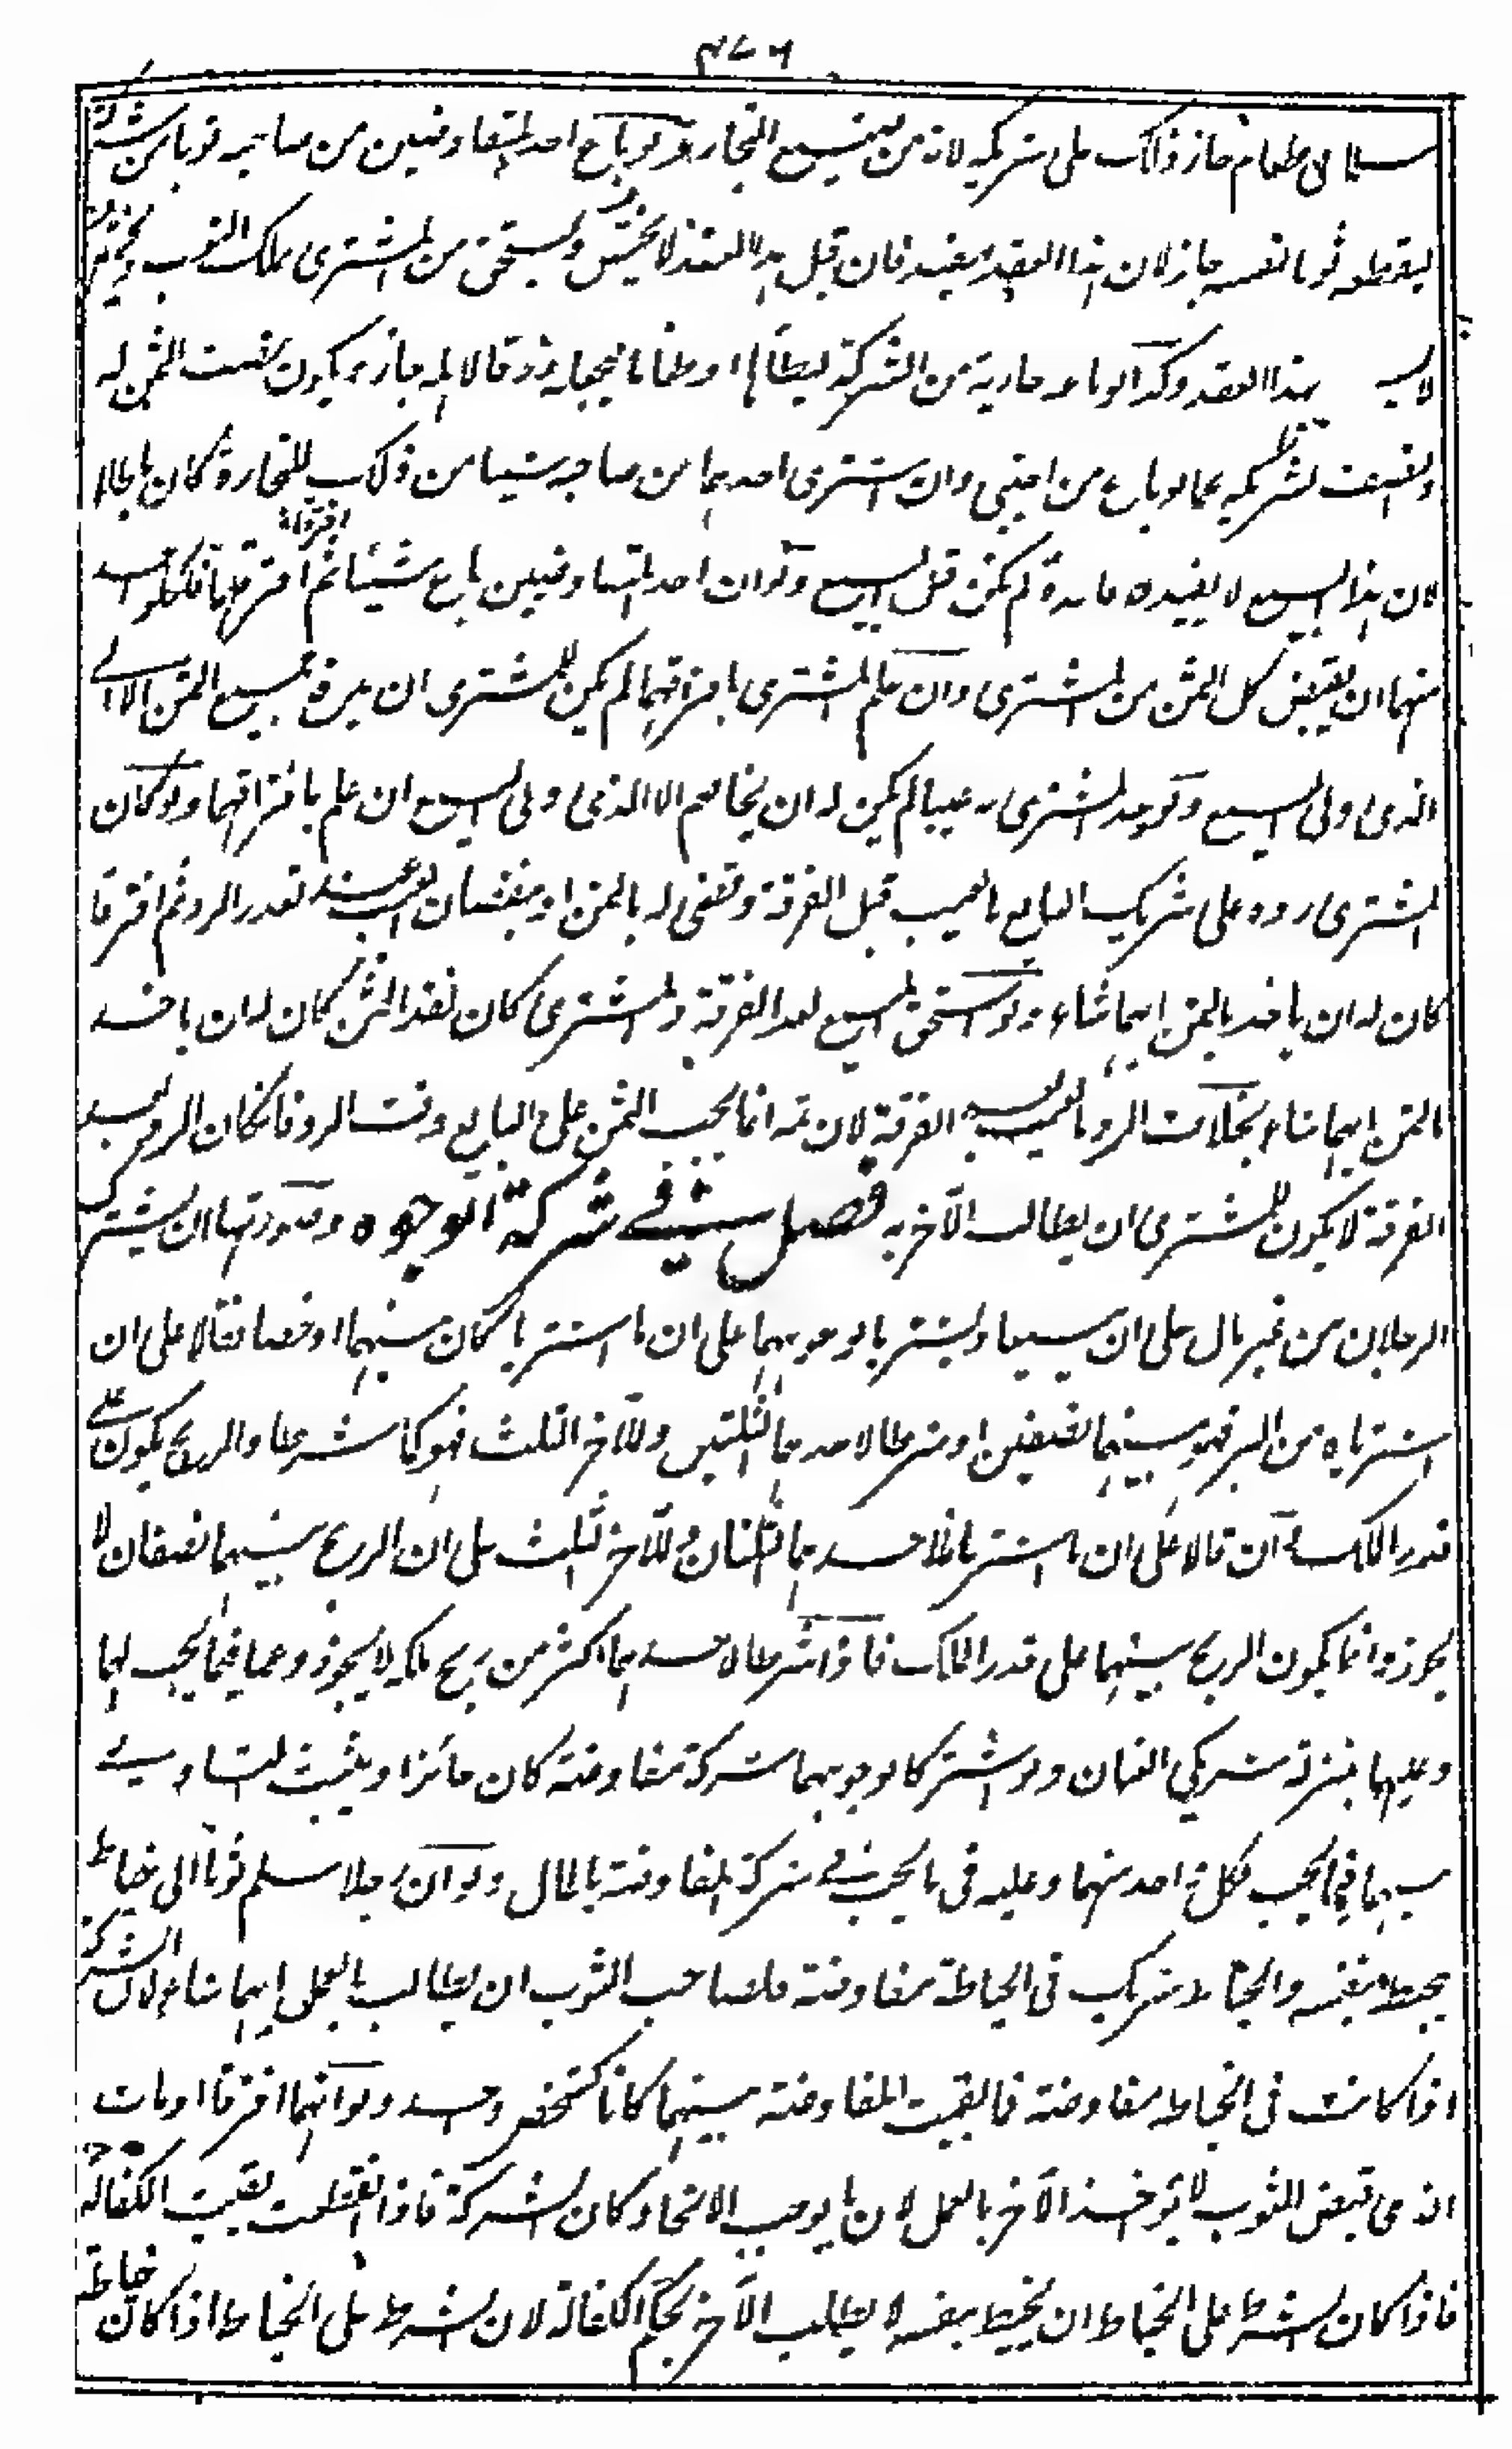 ۴۷۶
سلما فی طعام جاز ذلک علی شریکه لانه من صنیع التجار ولو باع احد المتفاوضین من صاحبه ثوبا من شرکة
لیقطعه ثوبا لنفسه جاز لان هذا العقد مفید فان قبل هذا العقد لا یختص و یستحق من المشتری ملک الثوب و یختص
لا بهذا العقد وکذا لو باعه جاریة من الشرکة لیطأها او طعاما یجعله رزقا لاهله جاز ویکون نصف الثمن له
والنصف لشریکه کما لو باع من اجنبی وان اشتری احدهما من صاحبه شیئا من ذلک للتجارة کان باطلا
لان هذا البیع لا یفیده فائدة لم تکن قبل البیع ولو ان احد المتفاوضین باع شیئا ثم افترقا فلکل واحد
منهما ان یقبض کل الثمن من المشتری وان علم المشتری بافتراقهما لم یکن للمشتری ان یدفع جمیع الثمن الا الی
الذی ولی البیع ولو وجد المشتری به عیبا لم یکن له ان یخاصم الا الذی ولی البیع ان علم بافتراقهما ولو کان
المشتری رده علی شریک البایع بالعیب قبل الفرقة وقضی له بالثمن او بنقصان العیب عند تعذر الرد ثم افترقا
کان له ان یاخذ بالثمن ایهما شاء ولو استحق المبیع بعد الفرقة والمشتری کان نقد الثمن کان له ان یاخذ
بالثمن ایهما شاء بخلاف الرد بالعیب بعد الفرقة لان ثمه انما یجب الثمن علی البایع وقت الرد فاذا کان الرد بعد
الفرقة لا یکون للمشتری ان یطالب الآخر به فصل فی شرکة الوجوه وصورتها ان یشترک
الرجلان من غیر مال علی ان یبیعا ویشتریا بوجوههما علی ان ما اشتریا کان بینهما او خصا فقالا علی ان
اشتریاه من البز فهو بینهما نصفین او شرطا لاحدهما الثلثین وللآخر الثلث فهو کما شرطا والربح یکون علی
قدر الملک وان قالا علی ان ما اشتریا فلاحدهما الثلثان وللآخر ثلث علی ان الربح بینهما نصفان لا
یجوز وانما یکون الربح بینهما علی قدر الملک فاذا شرطا لاحدهما اکثر من ربح ملکه لا یجوز وهما فیما یجب لهما
وعلیهما بمنزلة شریکی العنان ولو اشترکا بوجوههما شرکة مفاوضة کان جائزا ویثبت التساوی
بینهما فیما یجب لکل واحد منهما وعلیه فی ما یجب فی شرکة المفاوضة بالمال ولو ان رجلا سلم ثوبا الی خیاط
یخیطه بنفسه والخیاط شریک فی الخیاطة مفاوضة فلصاحب الثوب ان یطالب بالعمل ایهما شاء لان الشرکة
اذا کانت فی الخیاطة مفاوضة فما بقیت المفاوضة بینهما کانا کشخص واحد ولو انهما افترقا او مات
الذی قبض الثوب لا یؤاخذ الآخر بالعمل لان ما یوجب الاتحاد کان الشرکة فاذا انقطعت بقیت الکفالة
فاذا کان الشرط علی الخیاط ان یخیط بنفسه لا یطالب الآخر بحکم الکفالة لان الشرط علی الخیاط اذا کان خیاطة